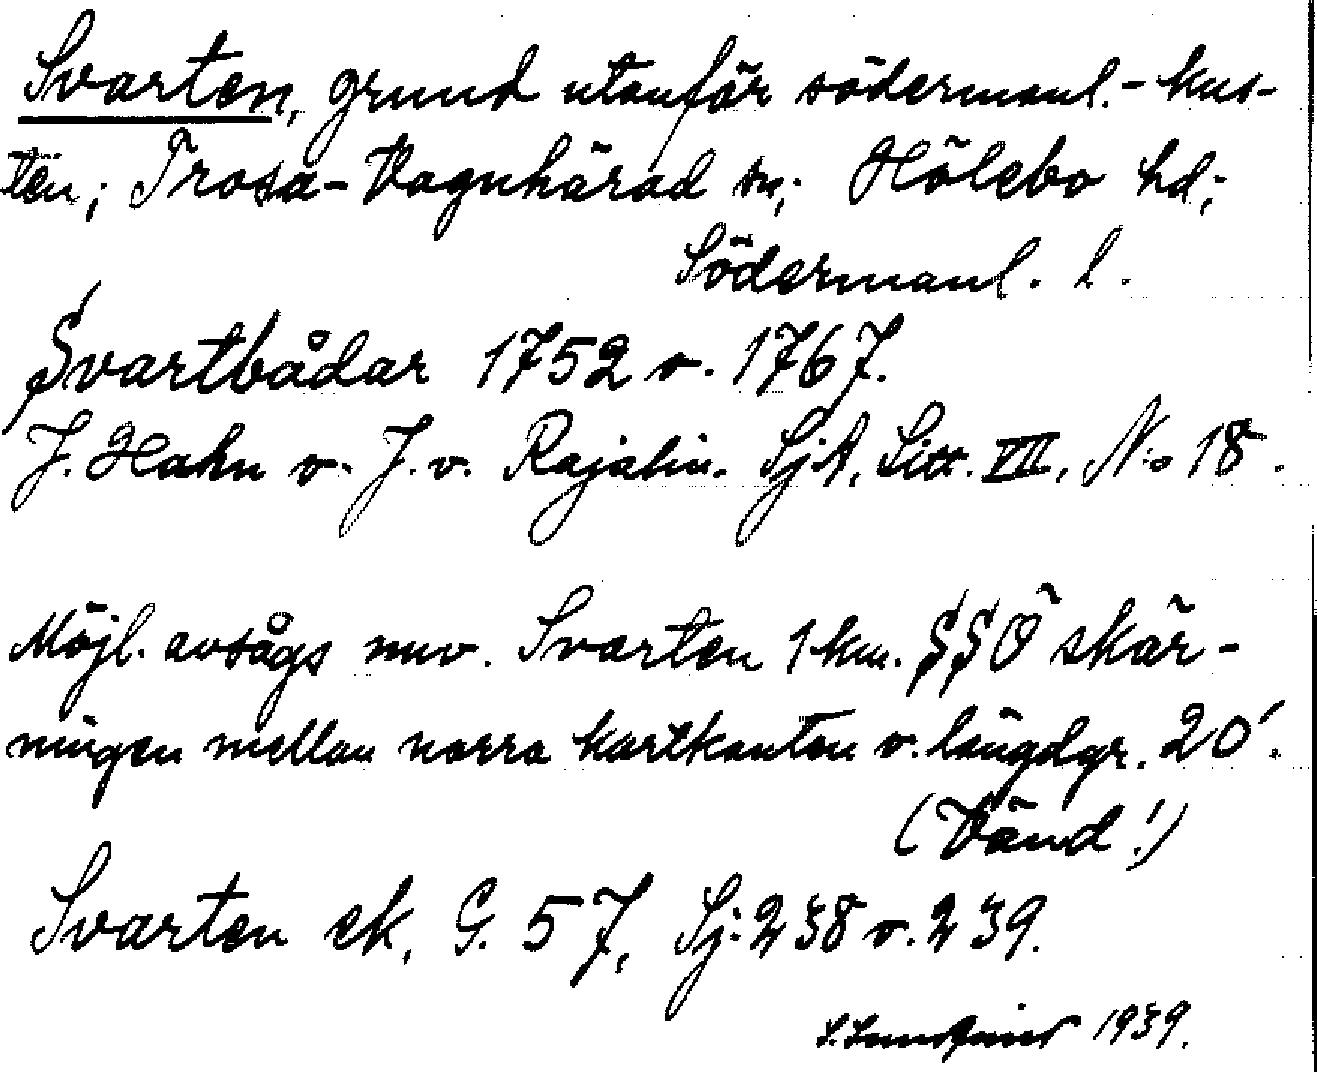 Svarten, grund utanför södermanl.-kus-
ten; Trosa-Vagnhärad sn; Hölebo hd;
Södermanl. l.
Svartbådar 1752 o. 1767.
J. Hahn o. J. v. Rajalin. SjA, Litt. VII, No 18.
Möjl. avsågs nuv. Svarten 1 km. SSÖ skär-
ningen mellan norra kartkanten o. längdgr. 20'.
(Vänd!)
Svarten ek. G. 57, Sj: 238 o. 239.
1939.